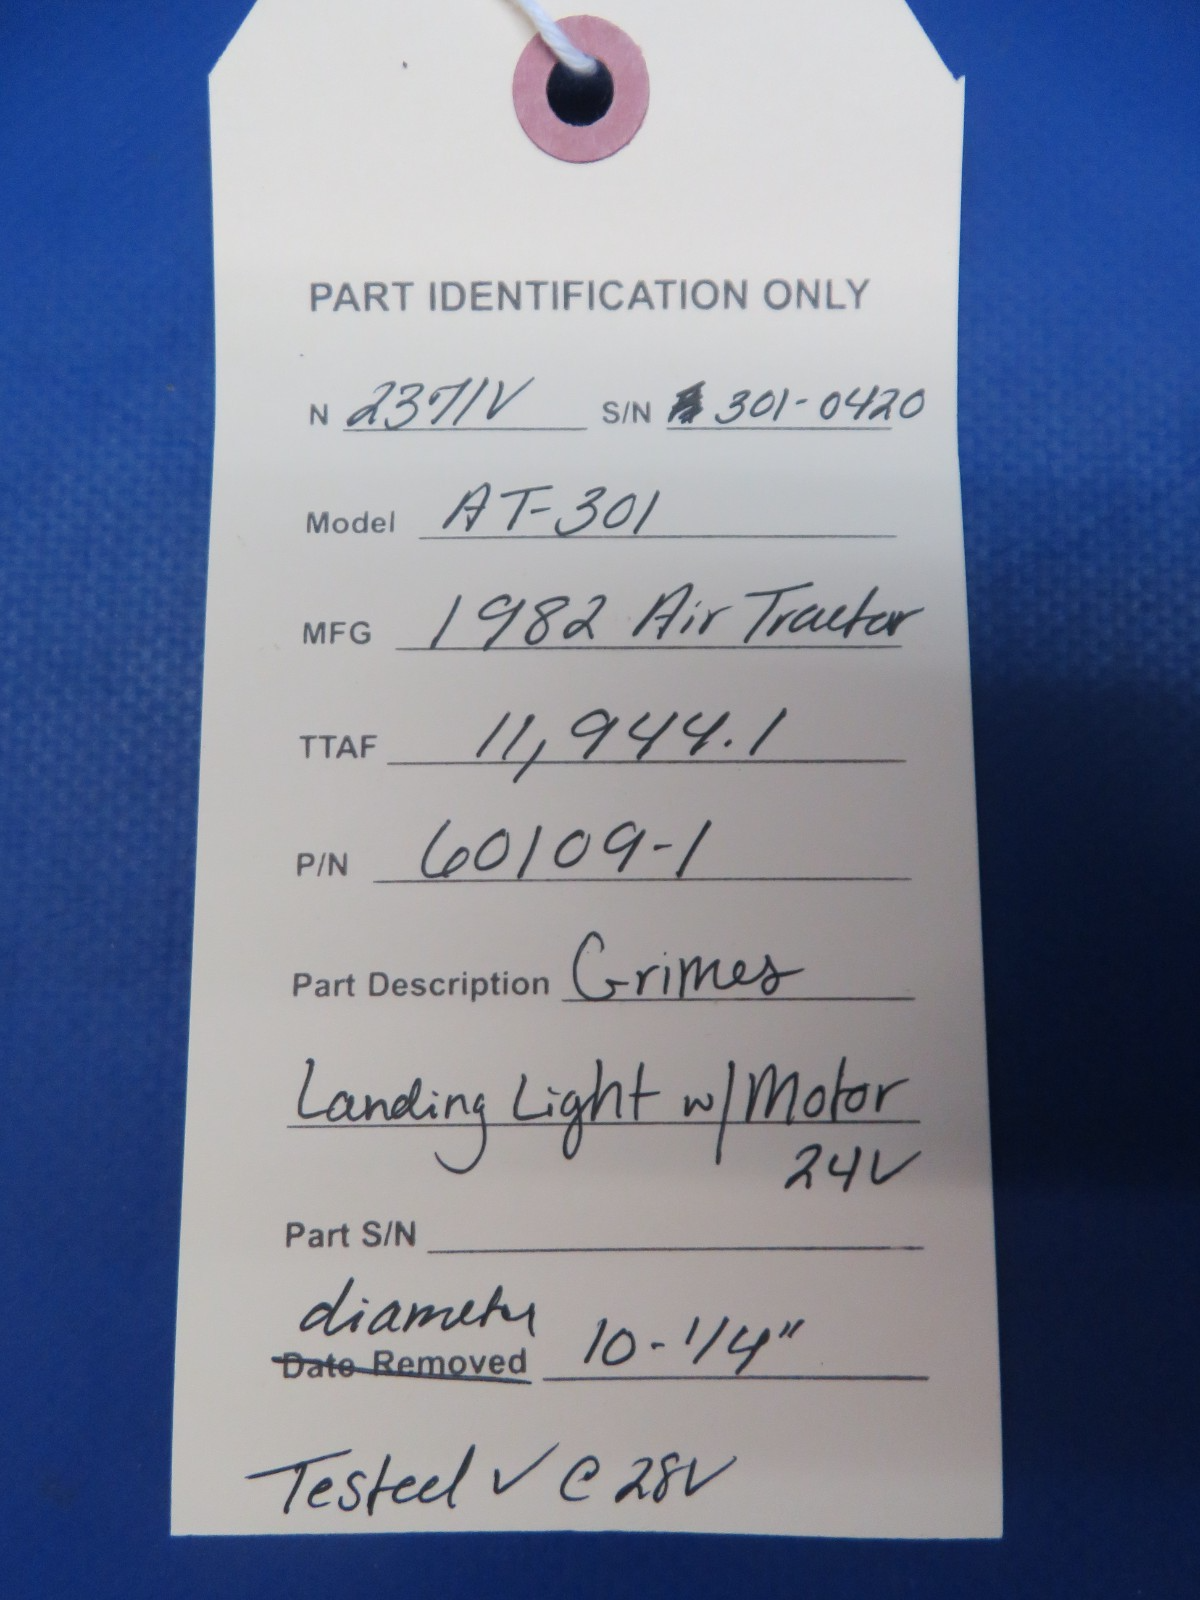 PART IDENTIFICATION ONLY
N 2371V S/N 301-0420
Model AT-301
MFG 1982 Air Tractor
TTAF 11,944.1
P/N 60109-1
Part Description Grimes
Landing Light w/Motor
24V
Part S/N
diameter
Date Removed 10-1/4"
Tested ✓ @ 28V